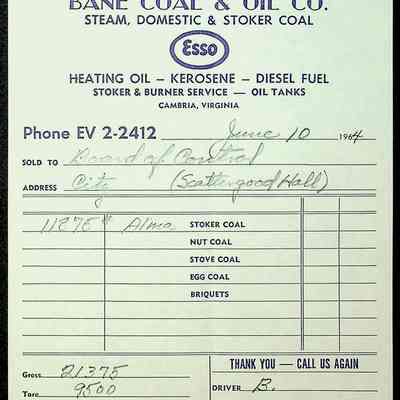 BANE COAL & OIL CO.
STEAM, DOMESTIC & STOKER COAL
Esso
HEATING OIL – KEROSENE – DIESEL FUEL
STOKER & BURNER SERVICE — OIL TANKS
CAMBRIA, VIRGINIA
Phone EV 2-2412 June 10 1964
SOLD TO Board of Control
ADDRESS City (Scattergood Hall)
11875 # Alma STOKER COAL
NUT COAL
STOVE COAL
EGG COAL
BRIQUETS
Gross 21375 THANK YOU — CALL US AGAIN
Tare 9500 DRIVER B.